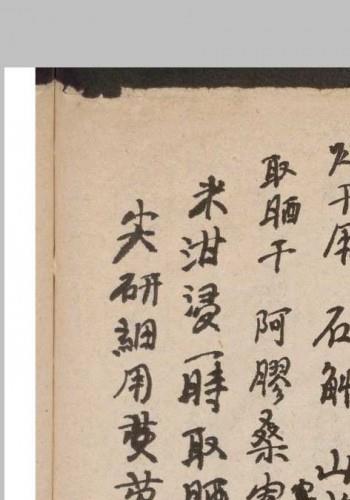 干用 石斛 山
取晒干 阿膠桑
米泔浸一時取晒
尖研細用黄